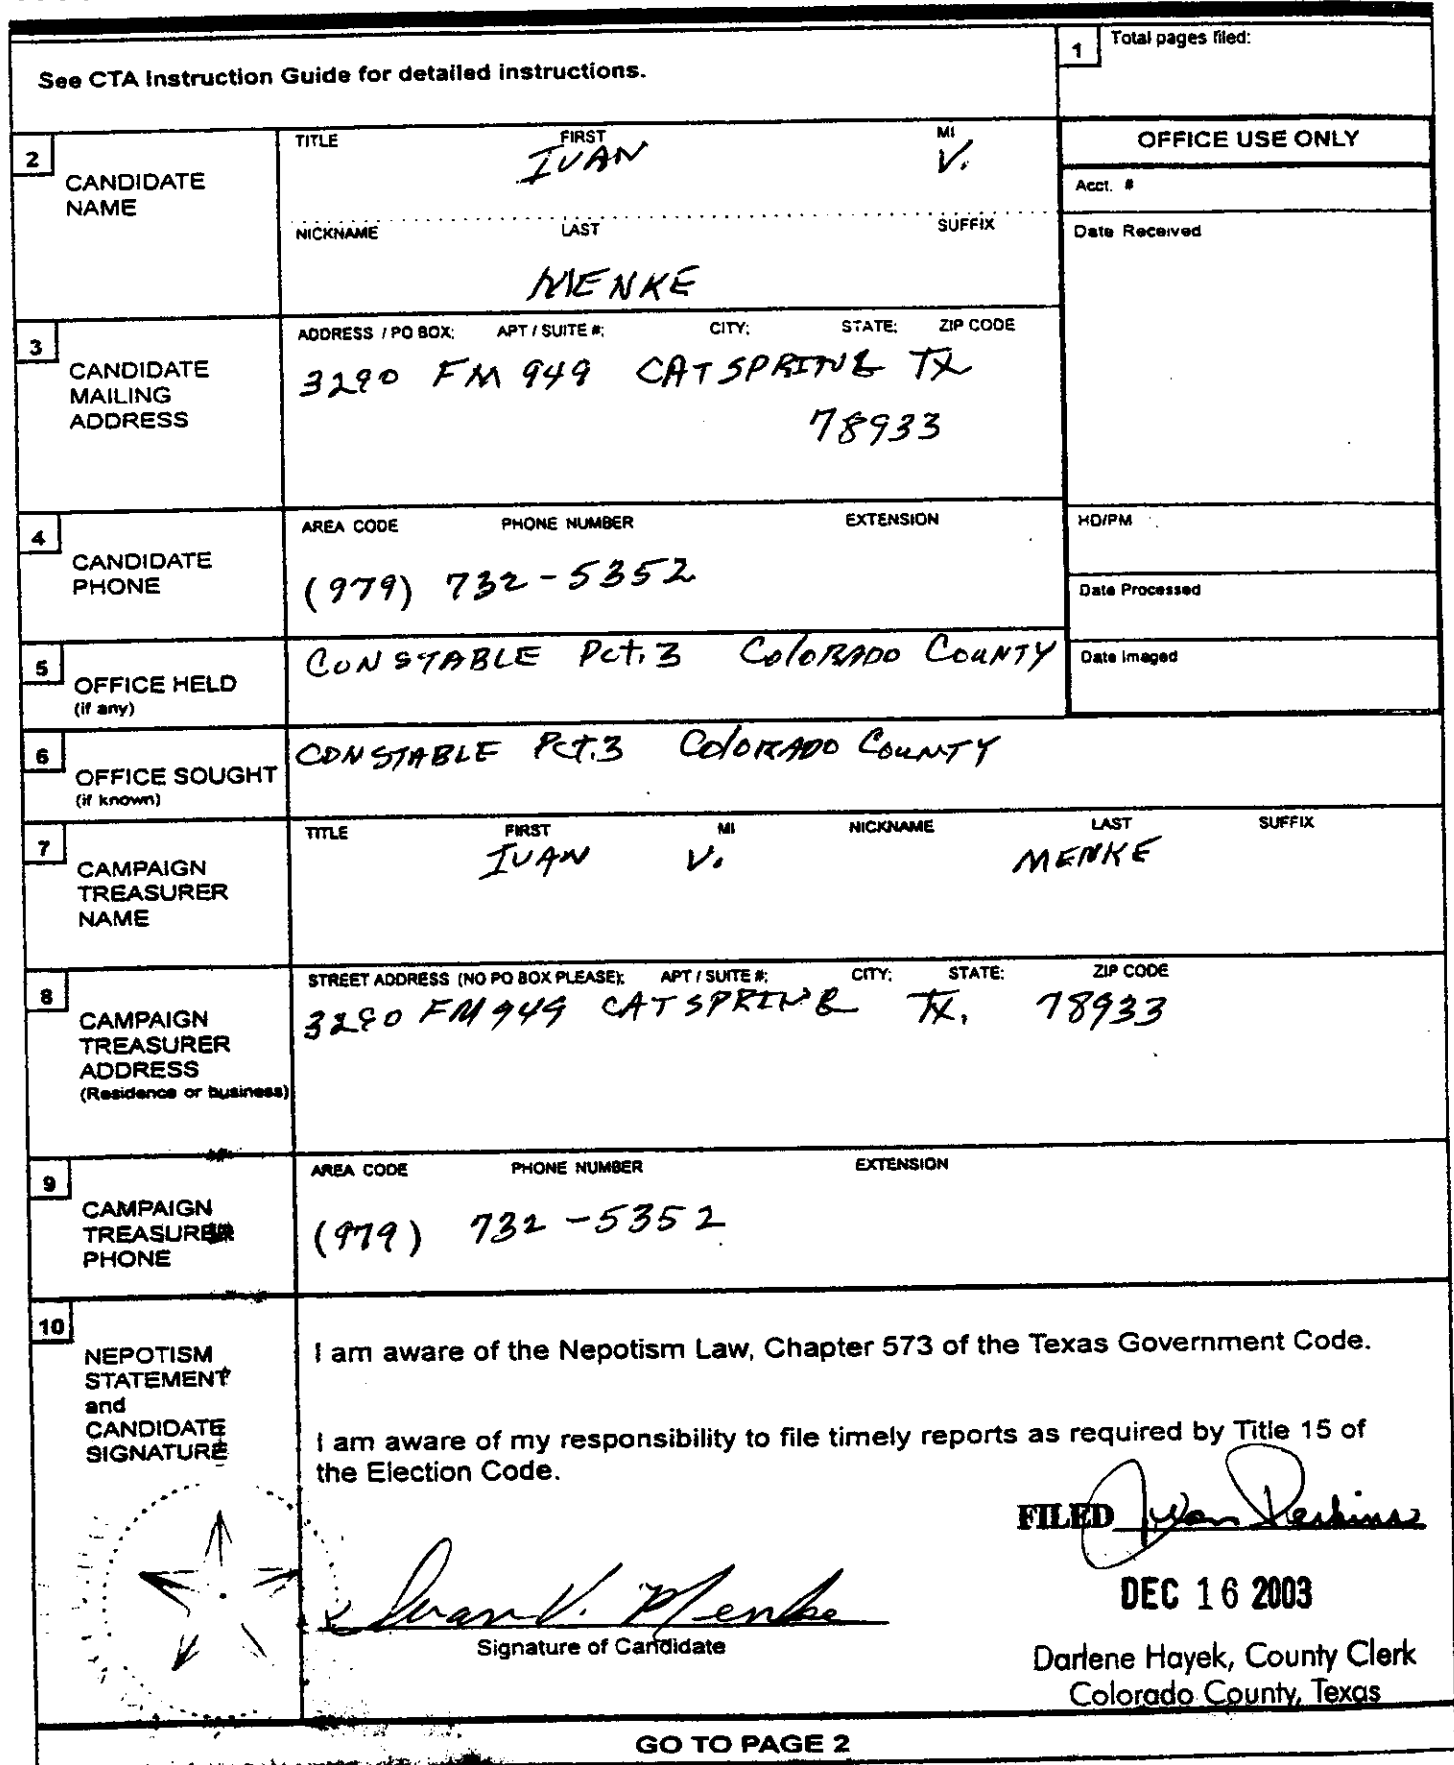 See CTA Instruction Guide for detailed instructions.
1 Total pages filed:
2 CANDIDATE NAME
TITLE FIRST MI
IVAN V.
NICKNAME LAST SUFFIX
MENKE
OFFICE USE ONLY
Acct. #
Date Received
3 CANDIDATE MAILING ADDRESS
ADDRESS / PO BOX; APT / SUITE #; CITY; STATE; ZIP CODE
3290 FM 949 CAT SPRING TX
78933
4 CANDIDATE PHONE
AREA CODE PHONE NUMBER EXTENSION
(979) 732-5352
HD/PM
Date Processed
5 OFFICE HELD
(if any)
CONSTABLE Pct. 3 COLORADO COUNTY
Date Imaged
6 OFFICE SOUGHT
(if known)
CONSTABLE PCT. 3 COLORADO COUNTY
7 CAMPAIGN TREASURER NAME
TITLE FIRST MI NICKNAME LAST SUFFIX
IVAN V. MENKE
8 CAMPAIGN TREASURER ADDRESS
(Residence or business)
STREET ADDRESS (NO PO BOX PLEASE); APT / SUITE #; CITY; STATE; ZIP CODE
3290 FM 949 CAT SPRING TX. 78933
9 CAMPAIGN TREASURER PHONE
AREA CODE PHONE NUMBER EXTENSION
(979) 732-5352
10 NEPOTISM STATEMENT and CANDIDATE SIGNATURE
I am aware of the Nepotism Law, Chapter 573 of the Texas Government Code.
I am aware of my responsibility to file timely reports as required by Title 15 of
the Election Code.
FILED Perkins
DEC 16 2003
Ivan V. Menke
Signature of Candidate
Darlene Hayek, County Clerk
Colorado County, Texas
GO TO PAGE 2